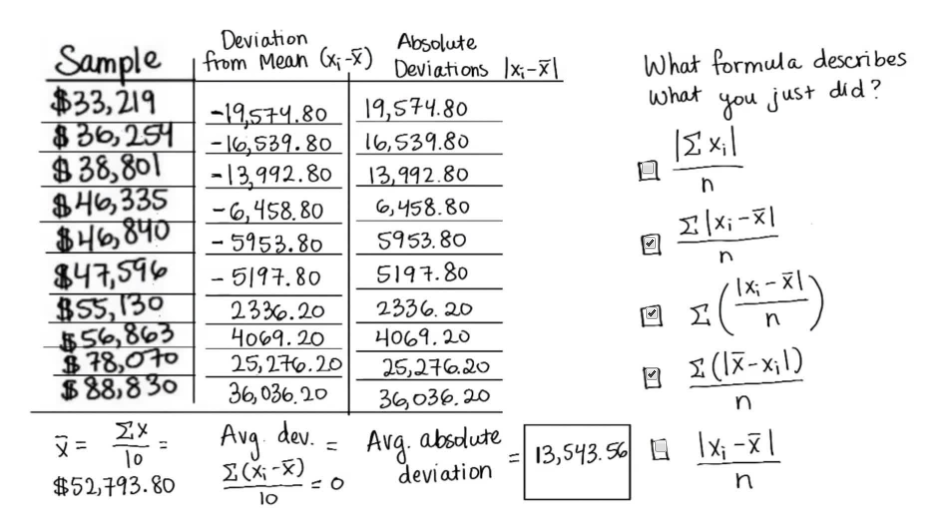 Sample | Deviation from Mean (xᵢ-x̄) | Absolute Deviations |xᵢ-x̄|
$33,219 | -19,574.80 | 19,574.80
$36,254 | -16,539.80 | 16,539.80
$38,801 | -13,992.80 | 13,992.80
$46,335 | -6,458.80 | 6,458.80
$46,840 | -5953.80 | 5953.80
$47,596 | -5197.80 | 5197.80
$55,130 | 2336.20 | 2336.20
$56,863 | 4069.20 | 4069.20
$78,070 | 25,276.20 | 25,276.20
$88,830 | 36,036.20 | 36,036.20
x̄ = Σx/10 =
$52,793.80
Avg. dev. =
Σ(xᵢ-x̄)/10 = 0
Avg. absolute
deviation = 13,543.56
What formula describes
what you just did?
|Σxᵢ|/n
Σ|xᵢ-x̄|/n
Σ(|xᵢ-x̄|/n)
Σ(|x̄-xᵢ|)/n
|xᵢ-x̄|/n